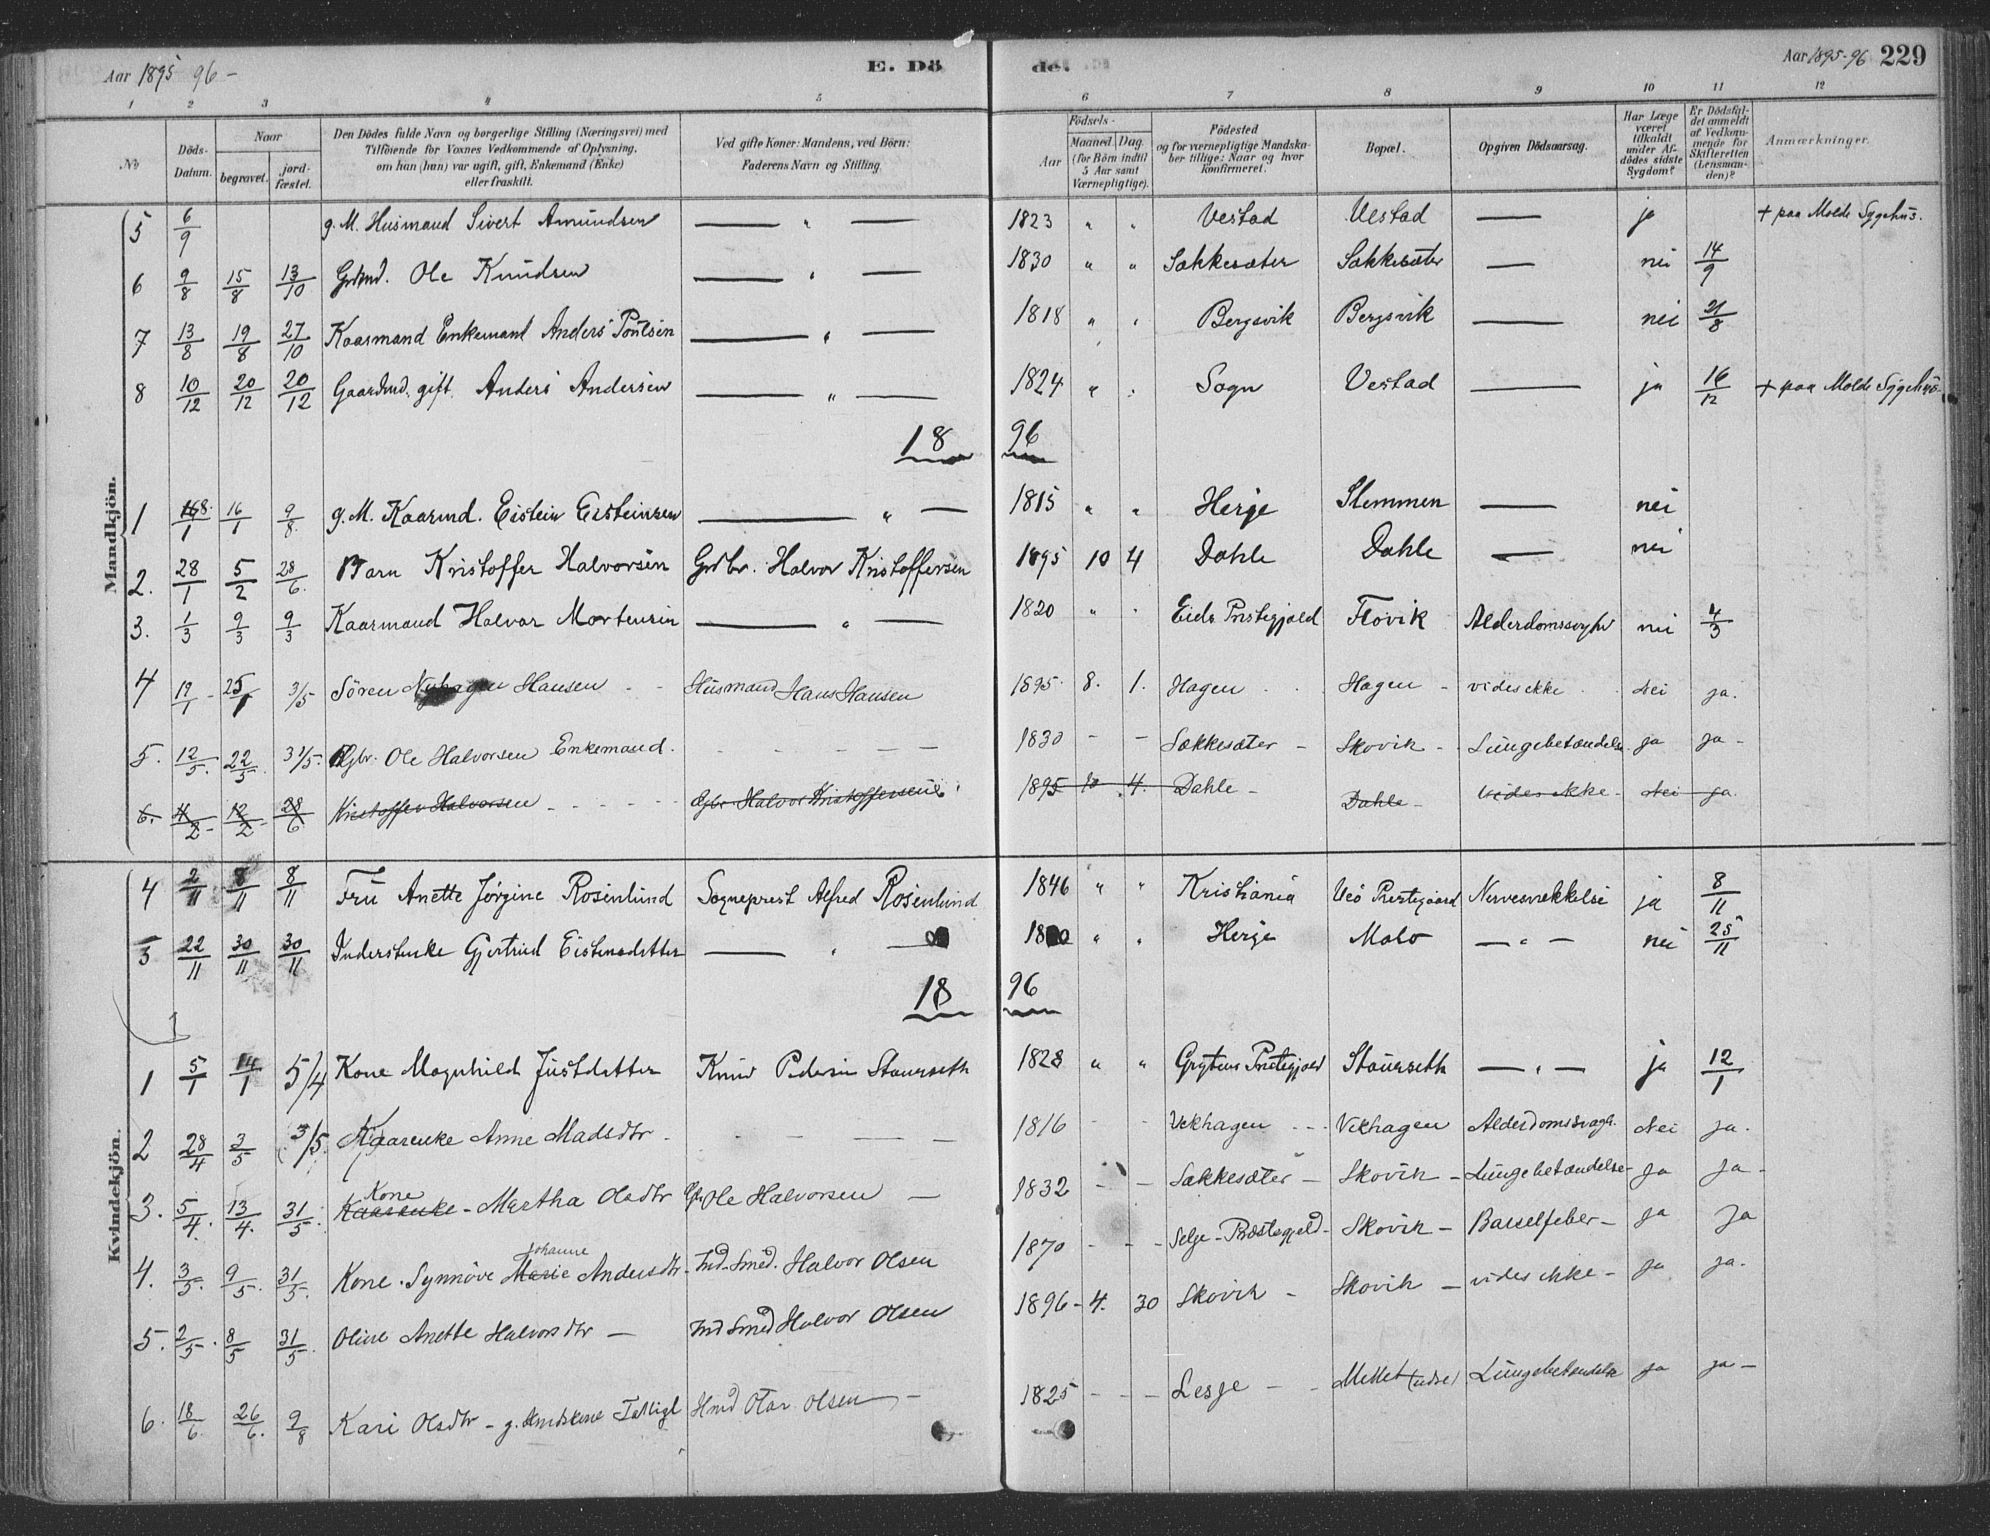 Aar 1895 96 - E. Dö de. Aar 1895-96 229
1 2 3 4 5 6 7 8 9 10 11 12
No Döds-Datum. Naar begravet. jord-fæstet. Den Dödes fulde Navn og borgerlige Stilling (Næringsvei) med Tilföiende for Voxnes Vedkommende af Oplysning, om han (hun) var ugift, gift, Enkemand (Enke) eller fraskilt. Ved gifte Koner: Mandens, ved Börn: Faderens Navn og Stilling. Födsels- Aar Maaned. Dag. (for Börn indtil 5 Aar samt Værnepligtige). Födested og for værnepligtige Mandska-ber tillige: Naar og hvor konfirmeret. Bopæl. Opgiven Dödsaarsag. Har Læge været tilkaldt under Af-dödes sidste Sygdom? Er Dödsfal-det anmeldt af Vedkom-mende for Skifteretten (Lensman-den)? Anmærkninger.
Mandkjön.
5 6/9 g. M. Husmand Sivert Amundsen — " — 1823 " " Vestad Vestad — ja + paa Molde Sygehus.
6 9/8 15/8 13/10 Grdmd. Ole Knudsen — " — 1830 " " Sækkesæter Sækkesæter — nei 14/9
7 13/8 19/8 27/10 Kaarmand Enkemand Anders Poulsen — " — 1818 " " Bergsvik Bergsvik — nei 21/8
8 10/12 20/12 20/12 Gaardmd. gift Anders Andersen — " — 1824 " " Sogn Vestad — ja 16/12 + paa Molde Sygehus.
18 96
1 8/1 16/1 9/8 g. M. Kaarmd. Eistein Eisteinsen — " — 1815 " " Herje Stemmen — nei
2. 28/1 5/2 28/6 Barn Kristoffer Halvorsen Grdbr. Halvor Kristoffersen 1895 10 4 Dahle Dahle — nei
3. 1/3 9/3 9/3 Kaarmand Halvor Mortensen — " — 1820 " " Eids Prestegjeld Flovik Alderdomssvaghed nei 4/3
4 19/1 - 25/1 3/5 Sören Hansen - - Husmand Hans Hansen 1895 8. 1. Hagen Hagen - vides ikke Nei ja.
5. 12/5. 22/5. 31/5. Gbr. Ole Halvorsen Enkemand. - - - - 1830 - - Sækkesæter - Skovik - Lungebetændelse ja ja -
6. 4/2 12/2 28/6 Kristoffer Halvorsen - - - - Gbr Halvor Kristoffersen 1895 10 4. Dahle - Dahle - Vides ikke - Nei ja.
Kvindekjön.
4 2/11 8/11 8/11 Fru Anette Jørgine Rosenlund Sogneprest Alfred Rosenlund 1846 " " Kristiania Veö Prestegaard Nervesvekkelse ja 8/11
5 22/11 30/11 30/11 Inderstenke Gjertrud Eistensdatter — " — " " Herje Malo — " — nei 25/11
18 96
1
1 5/1 14/1 5/4 Kone Magnhild Justdatter Knud Pedersen Staurseth 1828 " " Grytens Prestegjeld Staurseth — " — ja 12/1
2 28/4 3/5 3/5. Kaarenke Anne Madsdtr. - - - - 1816 - - Vekhagen - - Vekhagen Alderdomssvagh. Nei ja.
3. 5/4. 13/4. 31/5. Kaarenke Kone - Martha Olsdtr Gbr Ole Halvorsen — 1832 - - Sækkesæter - Skovik - Lungebetændelse - ja ja -
4. 3/5. 9/5. 31/5. Kone. Synnöve Marie Johanne Andersdtr - Ind. Smed. Halvor Olsen 1870 - - - Selje - Præstegjeld - Skovik - Barselfeber - ja ja
5. 2/5. 8/5 31/5. Oline Anette Halvorsdtr - Ind Smed Halvor Olsen 1896 - 4. 30 Skovik - Skovik - vides ikke - ja ja.
6. 18/6. 26/6. 9/8 Kari Olsdtr - g. Hmdskone Hmd Olsen - 1825 - - - Lesje - - Mittet Lungebetændelse ja ja -